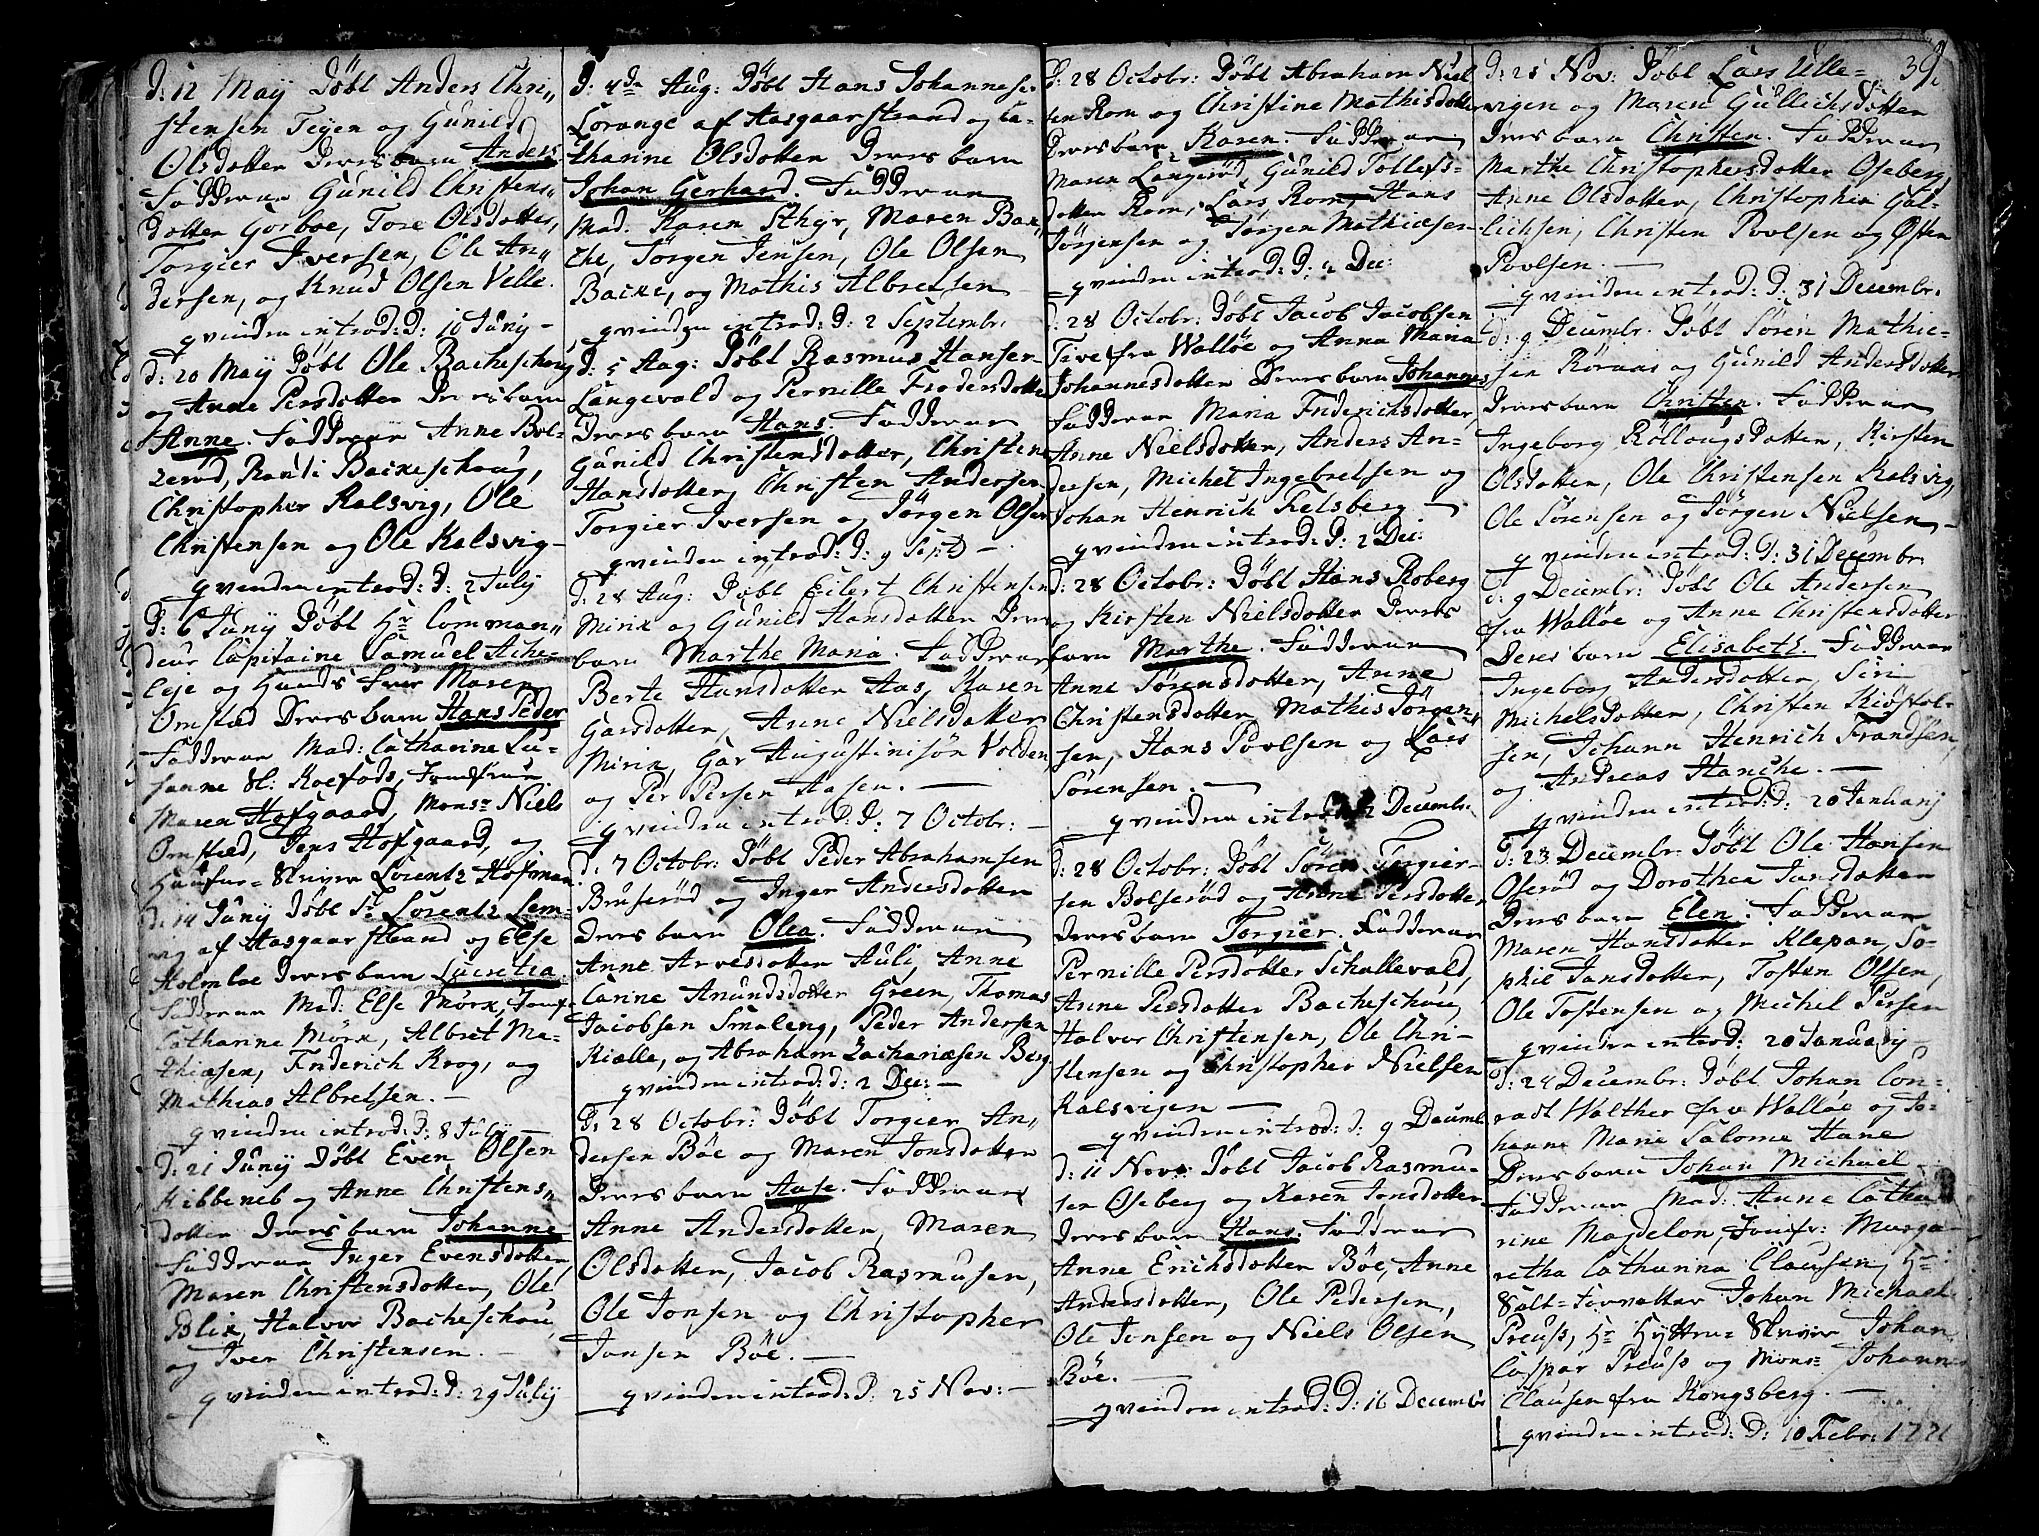 d: 12 Maÿ Døbt Anders Chri„
stensen Teÿen og Gunild
Olsdotter Deres barn Anders
Fadderne Gunild Christens„
dotter Gorboe, Tore Olsdotter,
Torgier Iversen, Ole An„
dersen, og Knud Olsen Velle.
qvinden introd: d: 10 Junÿ –
d: 20 Maÿ Døbt Ole Bacheschoug
og Anne Persdotter Deres barn
Anne. Fadderne Anne Bol-
zerød, Randi Backeschoug,
Christopher Kalsvig, Ole
Christensen og Ole Kalsvig –
qvinden introd: d: 2 Julÿ
d: 6 Junÿ Døbt Hr Comman„
deur Capitaine Samuel Ache-
leje og Hands Frue Maren
Ornsted Deres barn Hans Peder
Fadderne Mad: Catharine Su-
sanne Sl: Koefods, Jomfrue
Maren Hofgaard, Monsr Niels
Ornsted, Jens Hofgaard, og
Skriver Lorentz Hofman
d: 14 Junÿ Døbt Sr Lorentz Sem-
vig af Aasgaarstrand og Else
Holmboe Deres barn Lucretia
Fadderne Mad: Else Mörk, Jomf:
Catharine Mörk, Albret Ma-
thiasen, Friderich Krog, og
Mathias Albretsen. –
qvinden introd: d: 8 Julÿ
d: 21 Junÿ Døbt Even Olsen
Ribberneb og Anne Christens„
dotter Deres barn Johanne
Fadderne Inger Evensdotter,
Maren Christensdotter, Ole
Blix, Halvor Bacheschou,
og Iver Christensen. –
qvinden introd: d: 29 Julÿ
d: 4de Aug: Døbt Hans Johannesen
Lorange af Aasgaarstrand og Ca-
tharine Olsdotter Deres barn
Johan Gerhard. Fadderne
Mad. Karen Sthÿr, Maren Bac„
che, Jørgen Jensen, Ole Olsen
Backe, og Mathis Albretsen
qvinden introd: d: 2 Septembr.
d: 5 Aug: Døbt Rasmus Hansen
Langevald og Pernille Fredersdotter
Deres barn Hans. Fadderne
Gunild Christensdotter, Christine
Hansdotter, Christen Andersen
Torgier Iversen og Jørgen Olsen
qvinden introd: d: 9 Sept –
d: 28 Aug: Døbt Eilert Christensen
Mirik og Gunild Hansdotter Deres
barn Marthe Maria. Fadderne
Berte Hansdotter Aas, Karen
Garsdotter, Anne Nielsdatter
Mirik, Gar Augustinisøn Volden,
og Per Persen Aasen. –
qvinden introd: d: 7 Octobr: –
d: 7 Octobr: Døbt Peder Abrahamsen
Bruserød og Inger Andersdotter
Deres barn Olea. Fadderne
Anne Arvesdotter Auli, Anne
Carine Anundsdotter Green, Thomas
Jacobsen Smaleng, Peder Andersen
Kiælle, og Abraham Zachariæsen Berg
qvinden introd: d: 2 Dec: –
d: 28 Octobr: Døbt Torgier An„
dersen Bøe og Maren Jonsdotter
Deres barn Aase. Fadderne
Anne Andersdotter, Maren
Olsdotter, Jacob Rasmusen,
Ole Jonsen og Christopher
Jonsen Bøe. –
qvinden introd: d: 25 Nov: –
d: 28 Octobr: Døbt Abraham Niel
sen Rom og Christine Mathisdotter
Deres barn Karen. Fadderne
Maren Langerød, Gunild Tollefs-
dotter Rom, Lars Rom, Hans
Jørgensen og Jørgen Mathiesen
qvinden introd: d: 2 Dec:
d: 28 Octobr: Døbt Jacob Jacobsen
Tive fra Walløe og Anna Maria
Johannesdotter Deres barn Johannes
Fadderne Maria Friderichsdotter,
Anne Nielsdotter, Anders An-
dersen, Michel Ingebretsen og
Johan Henrich Felsberg –
qvinden introd: d: 2 Dec:
d: 28 Octobr: Døbt Hans Roberg
og Kirsten Nielsdotter Deres
barn Marthe. Fadderne
Anne Sørensdotter, Anne
Christensdotter, Mathis Jørgen„
sen, Hans Povlsen og Lars
Sørensen. –
qvinden introd: d: 2 Decembr.
d: 28 Octobr: Døbt Søren Torgier-
sen Bolserød og Anne Persdotter
Deres barn Torgier. Fadderne
Pernille Persdotter Schallevald,
Anne Persdotter Bacheschou,
Halvor Christensen, Ole Chri-
stensen og Christopher Nielsen
Kalsvigen –
qvinden introd: d: 9 Decemb.
d: 11 Novr Døbt Jacob Rasmu-
sen Oseberg og Karen Jonsdotter
Deres barn Hans. Fadderne
Anne Erichsdotter Bøe, Anne
Andersdotter, Ole Pedersen,
Ole Jensen og Niels Olsen
Bøe. –
qvinden introd: d: 16 Decembr
39.
d: 25 Nov: Døbt Lars Ulle-
vigen og Maren Gullichsdotter
Deres barn Christen. Fadderne
Marthe Christophersdotter Oseberg,
Anne Olsdotter, Christopher Gul-
lichsen, Christen Povlsen og Østen
Povlsen. –
qvinden introd: d: 31 Decembr.
d: 9 Decembr. Døbt Søren Mathie-
sen Røraas og Gunild Andersdotter
Deres barn Christen. Fadderne
Ingeborg Røllougsdotter, Kirsten
Olsdotter, Ole Christensen Kalsvig,
Ole Sørensen og Jørgen Nielsen –
qvinden introd: d: 31 Decembr
d: 9 Decembr: Døbt Ole Andersen
fra Walløe og Anne Christensdotter
Deres barn Elisabeth. Fadderne
Ingeborg Andersdotter, Siri
Michelsdotter, Christen Kiøstol-
sen, Johann Henrich Frandsen,
og Andreas Hanche. –
qvinden introd: d: 20 Januarij
d: 23 Decembr Døbt Ole Hansen
Oserød og Dorothea Jansdotter
Deres barn Elen. Fadderne
Maren Hansdotter Klepan, So-
phie Jansdotter, Tosten Olsen,
Ole Tostensen og Michel Persen
qvinden introd: 20 Januarij –
d: 24 Decembr: Døbt Johan Con-
radt Walther fra Walløe og Jo-
hanne Marie Salome Hane
Deres barn Johan Michael
Fadderne Mad: Anne Catha
rine Magdelon, Jomfr: Marga-
retha Catharina Clausen, Hr
Salt-Forvalter Johan Michael
Preuss, Hr Hytte-Skriver Johan
Caspar Preuss og Monsr Johannes
Clausen fra Kongsberg. –
qvinden introd: d: 10 Febr: 1771